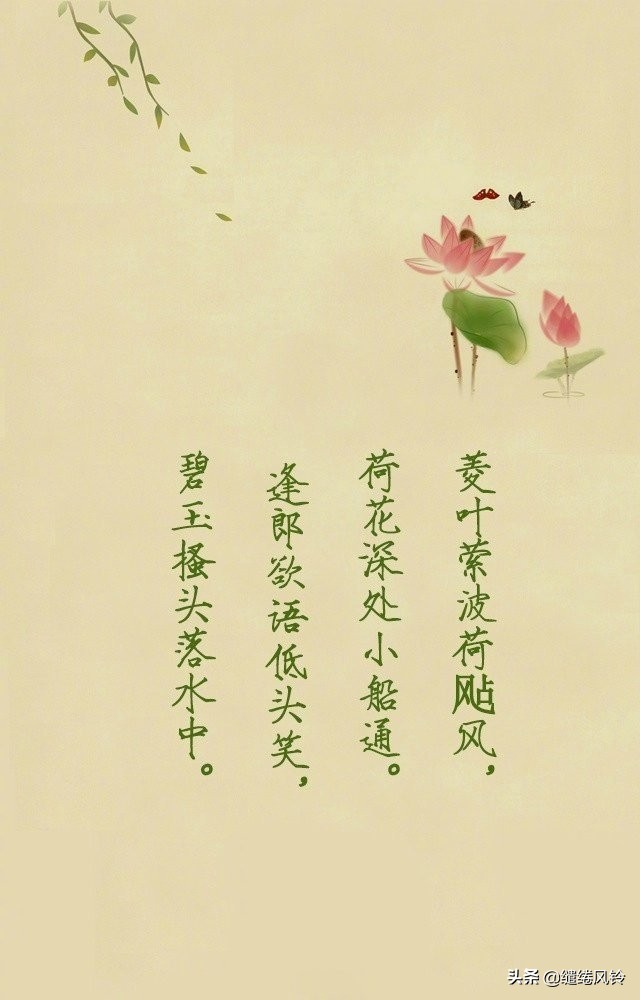 菱叶萦波荷飐风，
荷花深处小船通。
逢郎欲语低头笑，
碧玉搔头落水中。
头条 @缱绻风铃